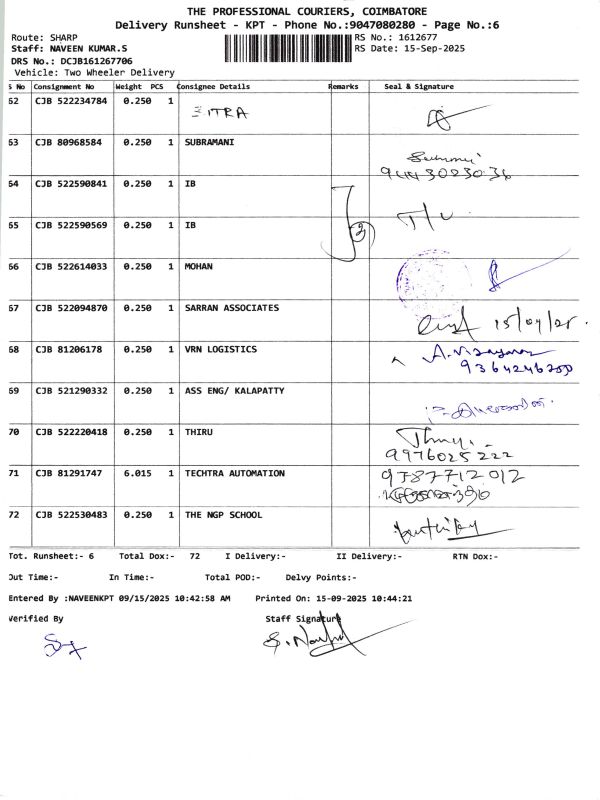 THE PROFESSIONAL COURIERS, COIMBATORE
Delivery Runsheet - KPT - Phone No.:9047080280 - Page No.:6
Route: SHARP RS No.: 1612677
Staff: NAVEEN KUMAR.S RS Date: 15-Sep-2025
DRS No.: DCJB161267706
Vehicle: Two Wheeler Delivery
S No Consignment No Weight PCS Consignee Details Remarks Seal & Signature
62 CJB 522234784 0.250 1 ZITRA
63 CJB 80968584 0.250 1 SUBRAMANI
64 CJB 522590841 0.250 1 IB
65 CJB 522590569 0.250 1 IB 2
66 CJB 522614033 0.250 1 MOHAN
67 CJB 522094870 0.250 1 SARRAN ASSOCIATES
68 CJB 81206178 0.250 1 VRN LOGISTICS
9364246200
69 CJB 521290332 0.250 1 ASS ENG/ KALAPATTY
70 CJB 522220418 0.250 1 THIRU
9976025222
71 CJB 81291747 6.015 1 TECHTRA AUTOMATION 9787712012
72 CJB 522530483 0.250 1 THE NGP SCHOOL
Tot. Runsheet:- 6 Total Dox:- 72 I Delivery:- II Delivery:- RTN Dox:-
Out Time:- In Time:- Total POD:- Delvy Points:-
Entered By :NAVEENKPT 09/15/2025 10:42:58 AM Printed On: 15-09-2025 10:44:21
Verified By Staff Signature